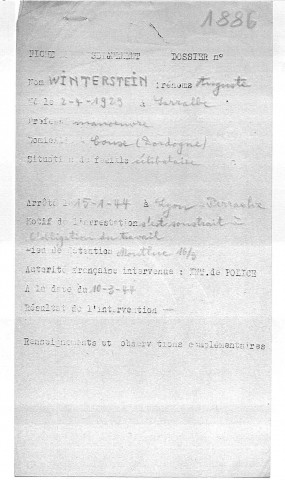 1886
FICHE SIGNEMENT DOSSIER n°
Nom WINTERSTEIN Prénoms Auguste
Né le 2-4-1929 à Sarralbe
Profess manoeuvre
Domicile Couze (Dordogne)
Situation de famille célibataire
Arrêté le 15-1-44 à Lyon Perrache
Motif de l'arrestation s'est soustrait à
l'obligation du travail
Lieu de détention Montluc
Autorité française intervenue : INT. de POLICE
A la date du 10-3-44
Résultat de l'intervention —
Renseignements et observations complémentaires